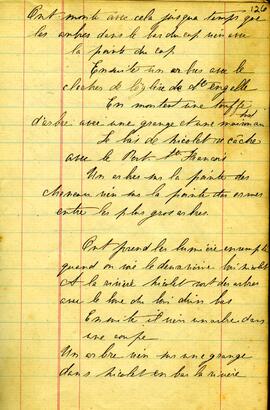 126
Ont monte avec cela jusque temps que
les arbres dans le bas du cap vien avec
la pointe du cap
Ensuite un arbre avec le
clocher de l'église de Ste Angelle
En montent une touffe
d'arbre avec une grange et une maison au
le bas de nicolet se câche
avec le Port St François
Un arbre sur la pointe des
cheneaux vien sur la pointe des ormes
entre les plus gros arbres.
Ont prend les lumière en remplie
quand on voie le deuxieme loin nicolet
et la rivière nicolet sort des arbres
avec le bout du loin du bas
Ensuite il vien un arbre dans
une coupe
Un arbre vien sur une grange
dans nicolet en bas la rivière